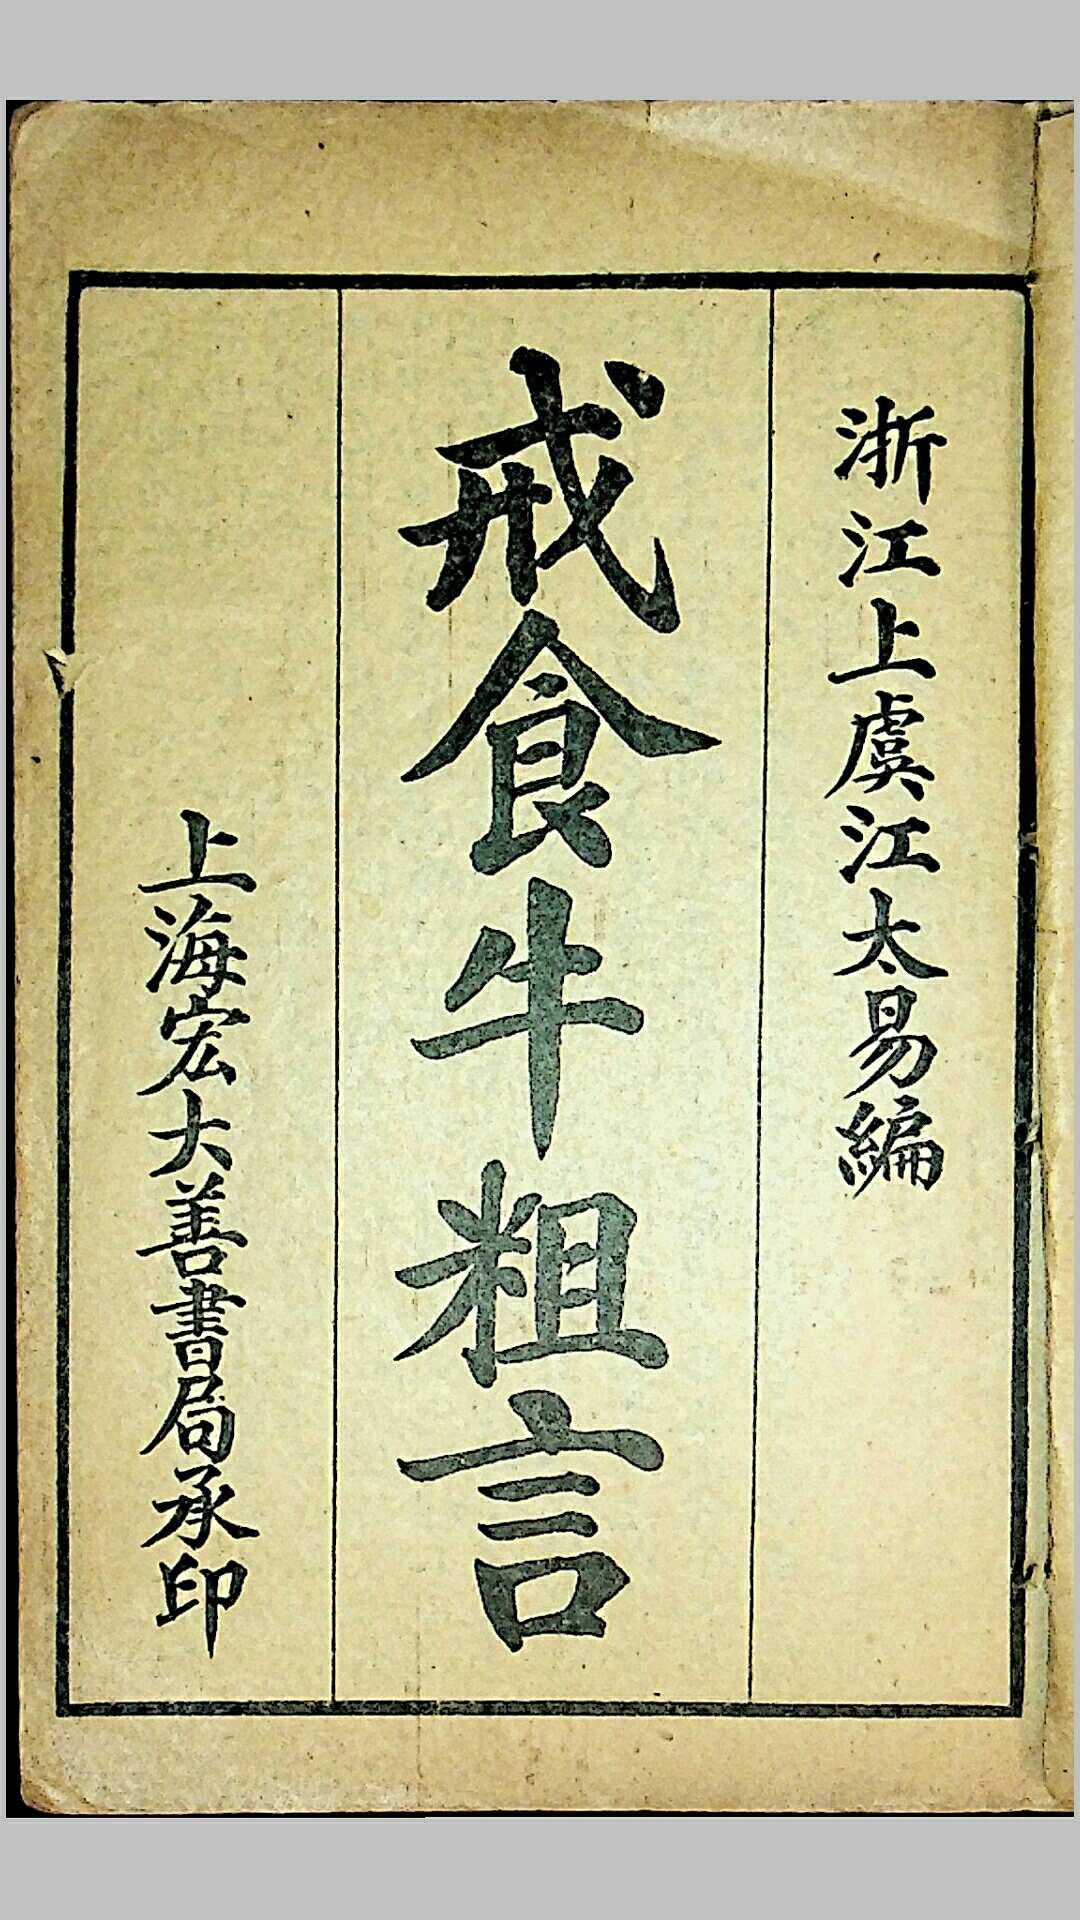 浙江上虞江太易編
戒食牛粗言
上海宏大善書局承印